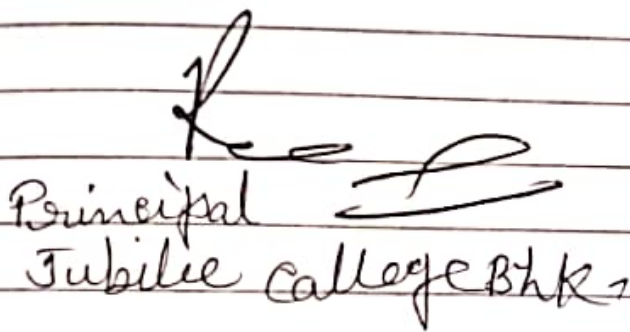 Principal
Jubilie College Bhk.